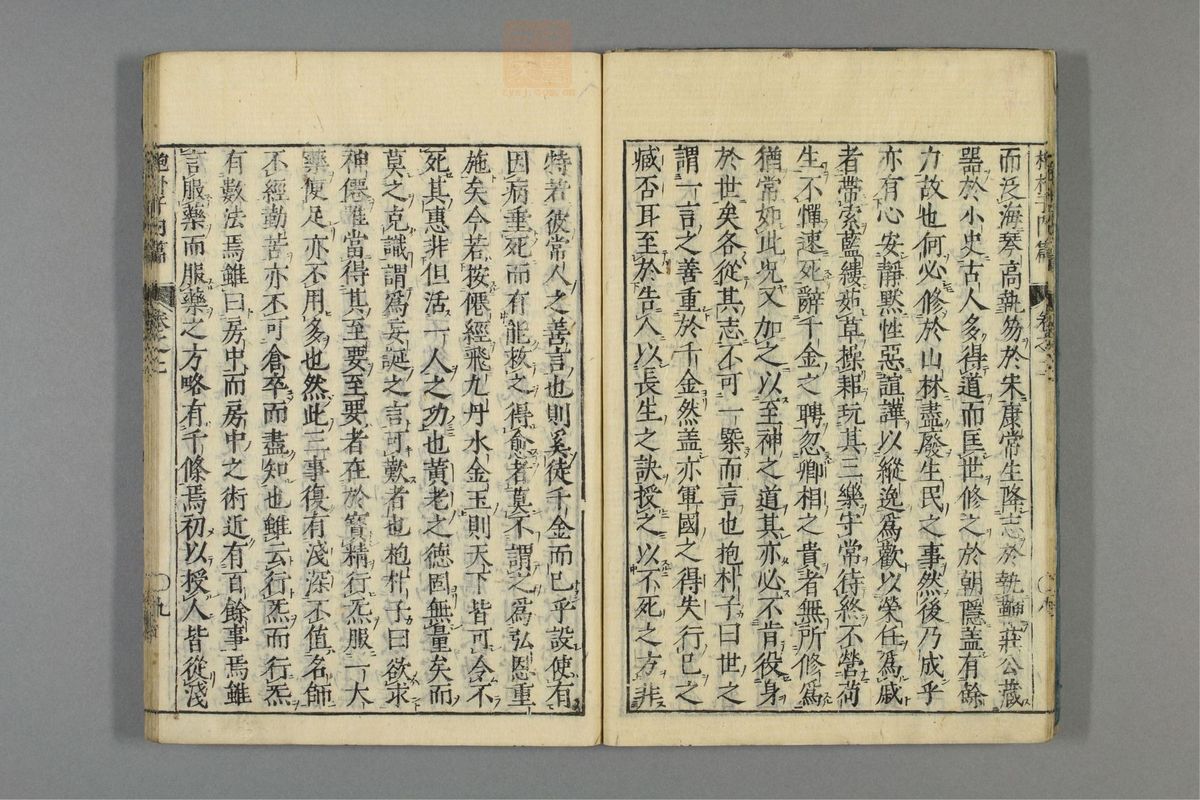 抱朴子內篇 卷之二 〇九
而泛海琴高執笏於宋康常生降志於執鞭莊公藏
器於小史古人多得道而匡世修之於朝隱盖有餘
力故也何必修於山林盡廢生民之事然後乃成乎
亦有心安靜默性惡諠譁以縱逸爲歡以榮任爲戚
者帶索藍縷茹草操耜玩其三樂守常待終不營苟
生不憚速死辭千金之聘忽卿相之貴者無所修爲
猶常如此况又加之以至神之道其亦必不肯役身
於世矣各從其志不可一槩而言也抱朴子曰世之
謂一言之善重於千金然盖亦軍國之得失行己之
臧否耳至於告人以長生之訣授之以不死之方非
特若彼常人之善言也則奚徒千金而已乎設使有
因病重死而有能救之得愈者莫不謂之爲弘恩重
施矣今若按僊經飛九丹水金玉則天下皆可令不
死其惠非但活一人之功也黃老之德固無量矣而
莫之克識謂爲妄誕之言可歎者也抱朴子曰欲求
神僊雖當得其至要至要者在於寳精行炁服一大
藥便足亦不用多也然此三事復有淺深不值名師
不經勤苦亦不可倉卒而盡知也雖云行炁而行炁
有數法焉雖曰房中而房中之術近有百餘事焉雖
言服藥而服藥之方略有千條焉初以授人皆從淺
抱朴子內篇 卷之二 〇九